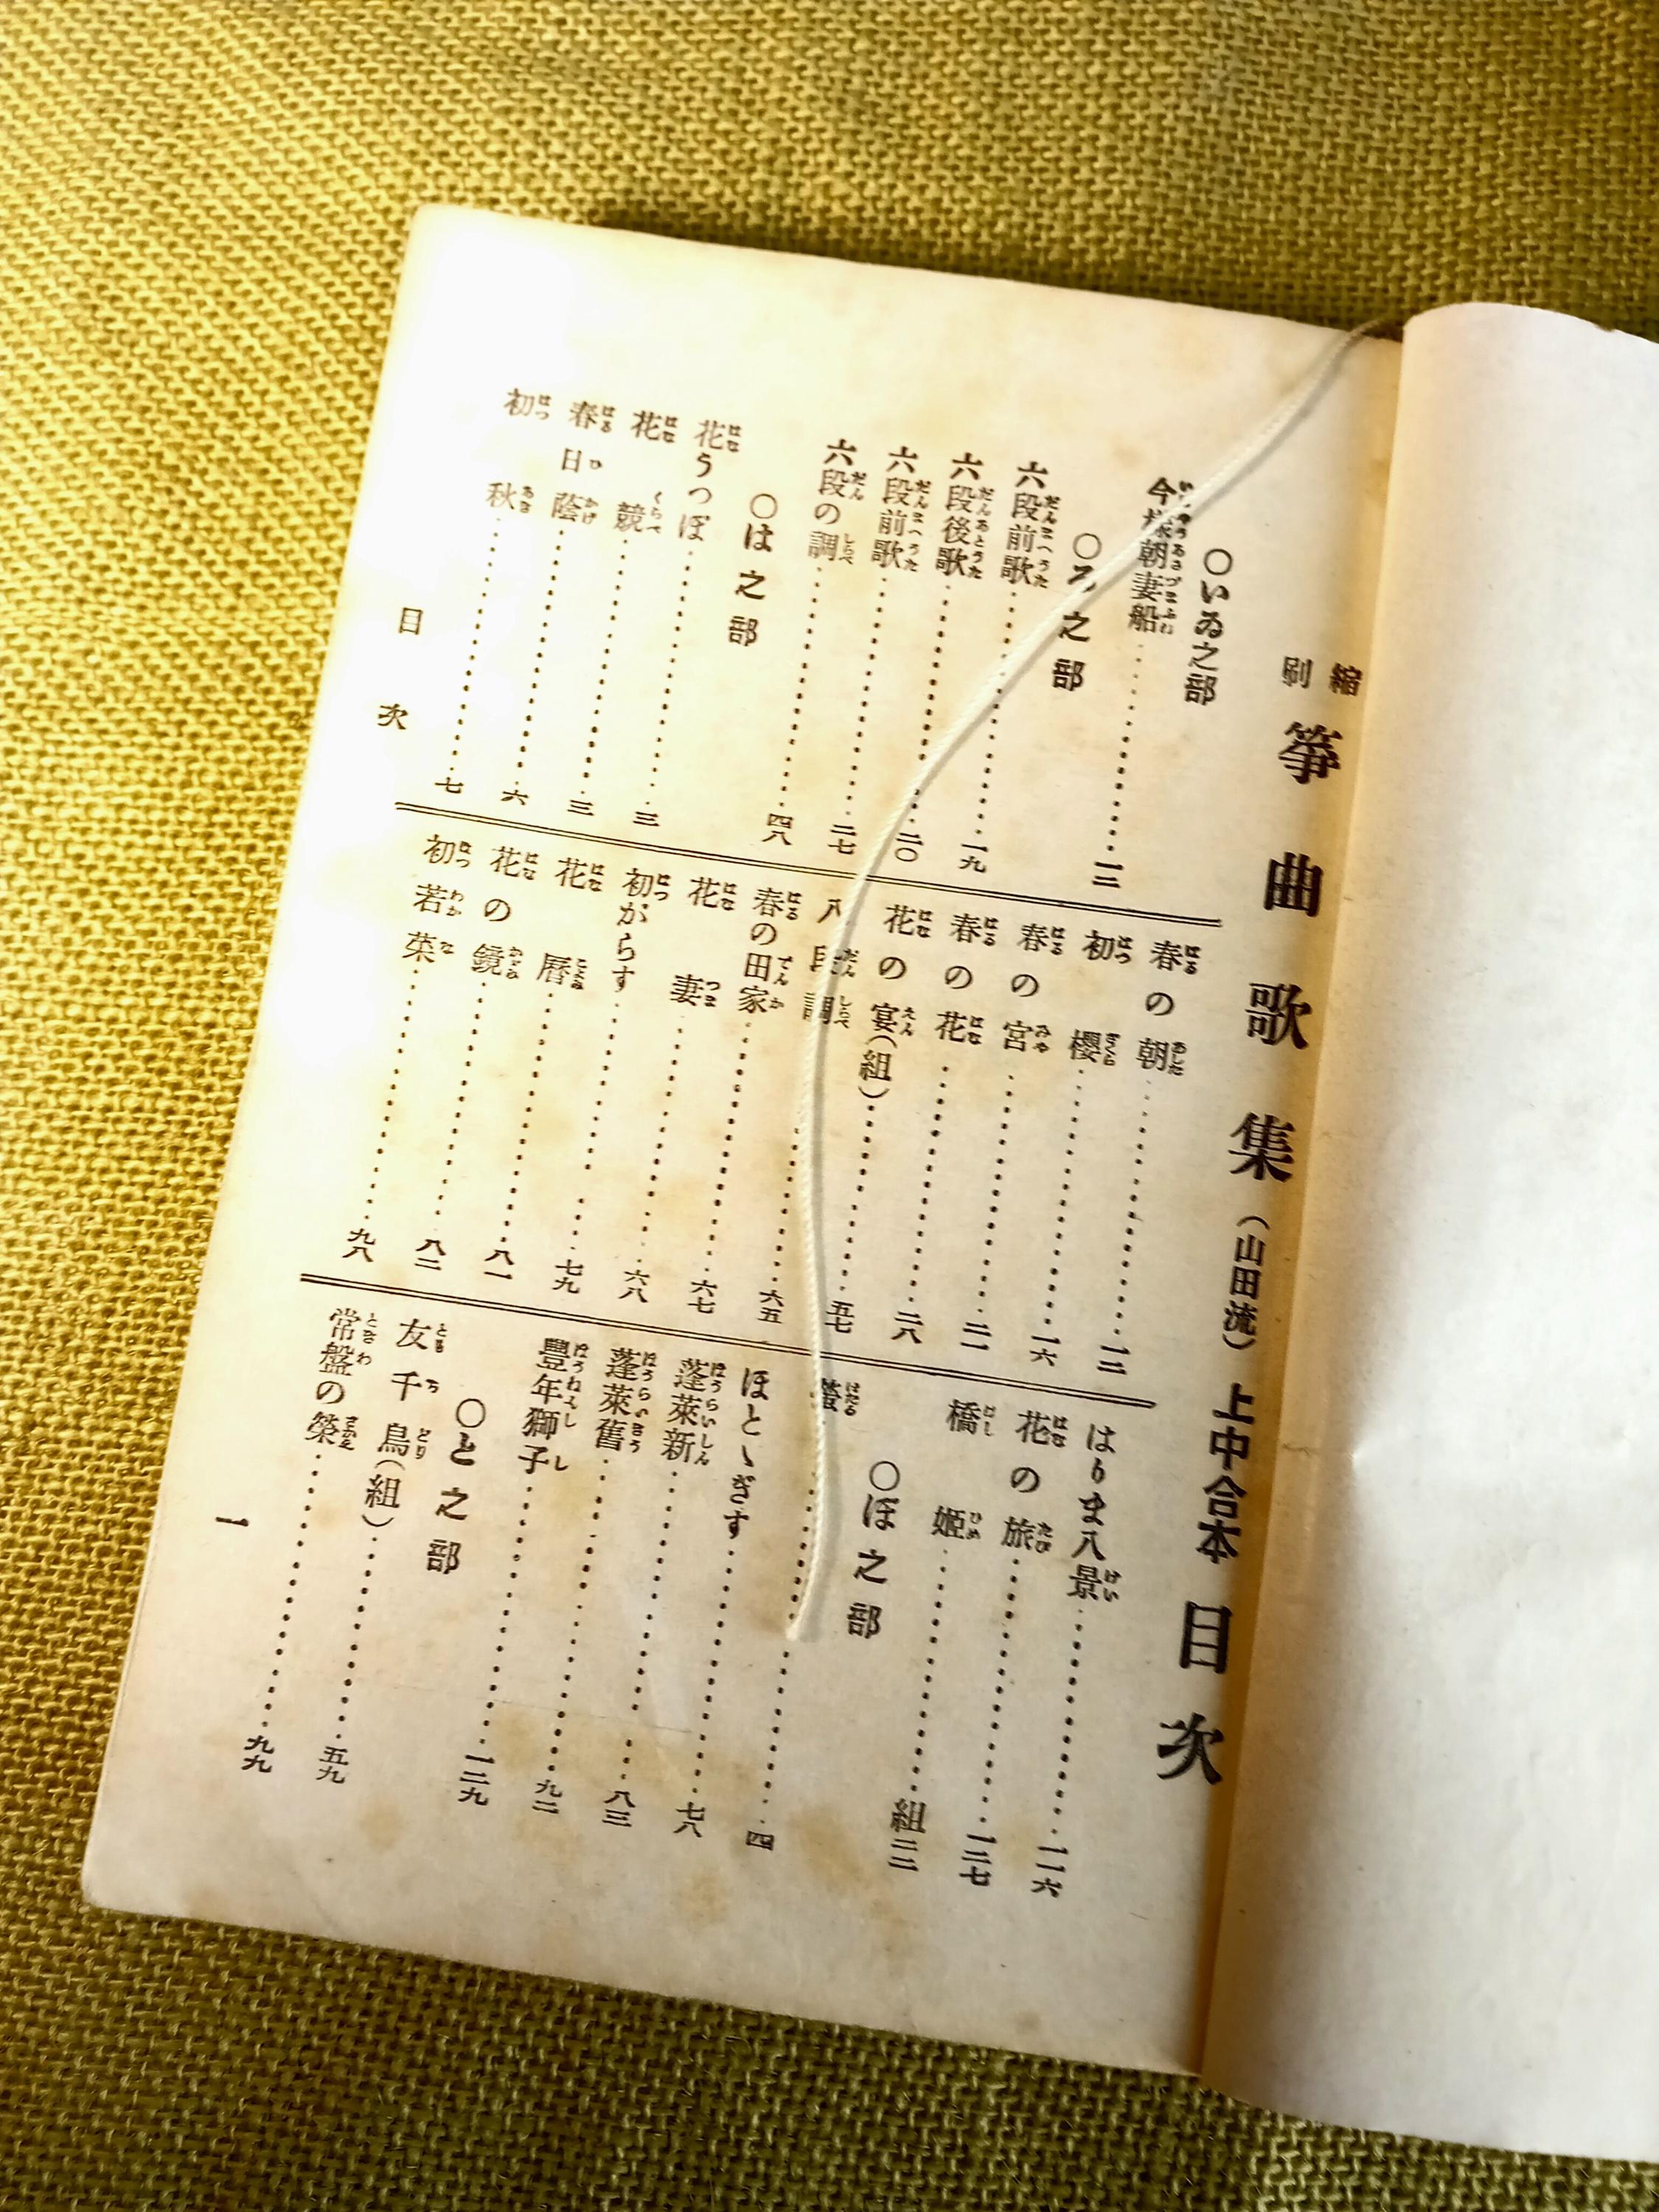 縮刷 箏曲歌集（山田流）上中合本 目次
○いゐ之部
今様朝妻船……一三
○ろ之部
六段前歌……一九
六段後歌……二〇
六段前歌……二七
六段の調……四八
○は之部
花うつぼ……三
花競……三
春日蔭……六
初秋……七
春の朝……一三
初櫻……一六
春の宮……二一
春の花……二八
花の宴（組）……五七
八段調……六五
春の田家……六七
花妻……六八
初がらす……七九
花暦……八一
花の鏡……八二
初若菜……九八
はりま八景……一一六
花の旅……一二七
橋姫……組二二
○ほ之部
螢……四
ほとゝぎす……七八
蓬萊新……八三
蓬萊舊……九二
豐年獅子……一二九
○と之部
友千鳥（組）……五九
常盤の榮……九九
目次
一